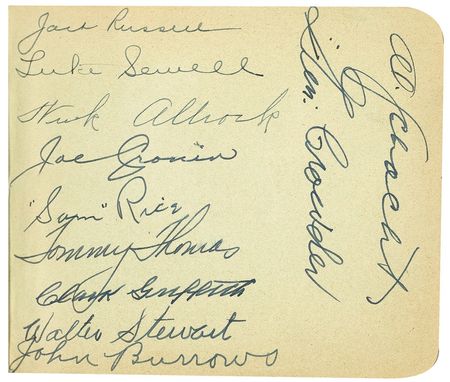 Jack Russell
Luke Sewell
Nick Altrock
Joe Cronin
"Sam" Rice
Tommy Thomas
Clark Griffith
Walter Stewart
John Burrows
Al. Schacht
"Gen. Crowder